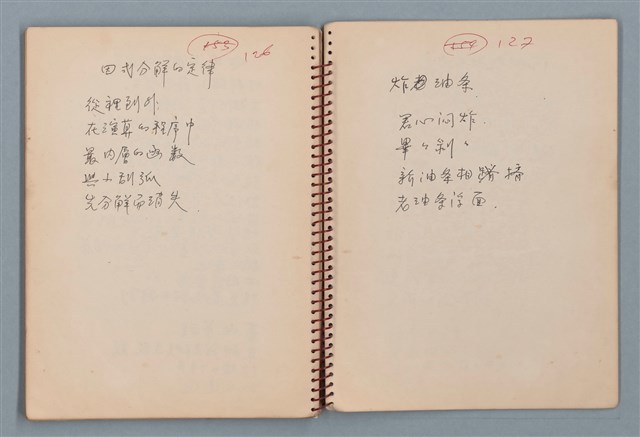 126
因式分解的定律
從裡到外
在演算的程序中
最內層的函数
與小刮弧
先分解而消失
127
炸老油条
君心闷炸
畢〻剝〻
新油条相擠
老油条浮面